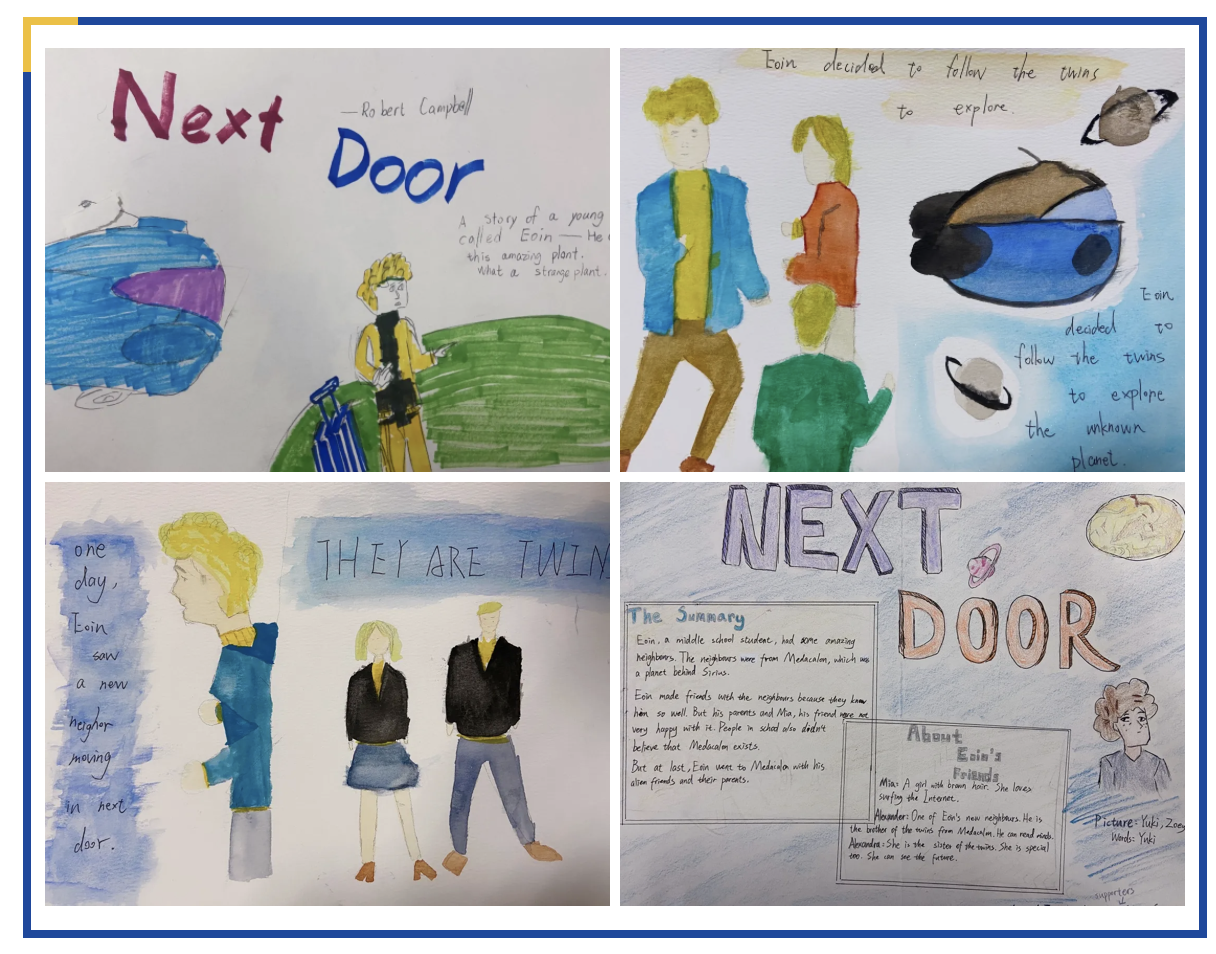 Next
—Robert Campbell
Door
A story of a young
called Eoin — He
this amazing plant.
What a strange plant.
Eoin decided to follow the twins
to explore.
Eoin
decided to
follow the twins
to explore
the unknown
planet.
one
day,
Eoin
saw
a new
neighor
moving
in next
door.
THEY ARE TWIN
NEXT
DOOR
The Summary
Eoin, a middle school student, had some amazing
neighbours. The neighbours were from Medacalon, which was
a planet behind Sirius.
Eoin made friends with the neighbours because they know
him so well. But his parents and Mia, his friend were not
very happy with it. People in school also didn't
believe that Medacalon exists.
But at last, Eoin went to Medacola with his
alien friends and their parents.
About
Eoin's
Friends
Mia: A girl with brown hair. She loves
surfing the Internet.
Alexander: One of Eoin's new neighbours. He is
the brother of the twins from Medacalon. He can read minds.
Alexandra: She is the sister of the twins. She is special
too. She can see the future.
Picture: Yuki, Zoey
Words: Yuki
supporters